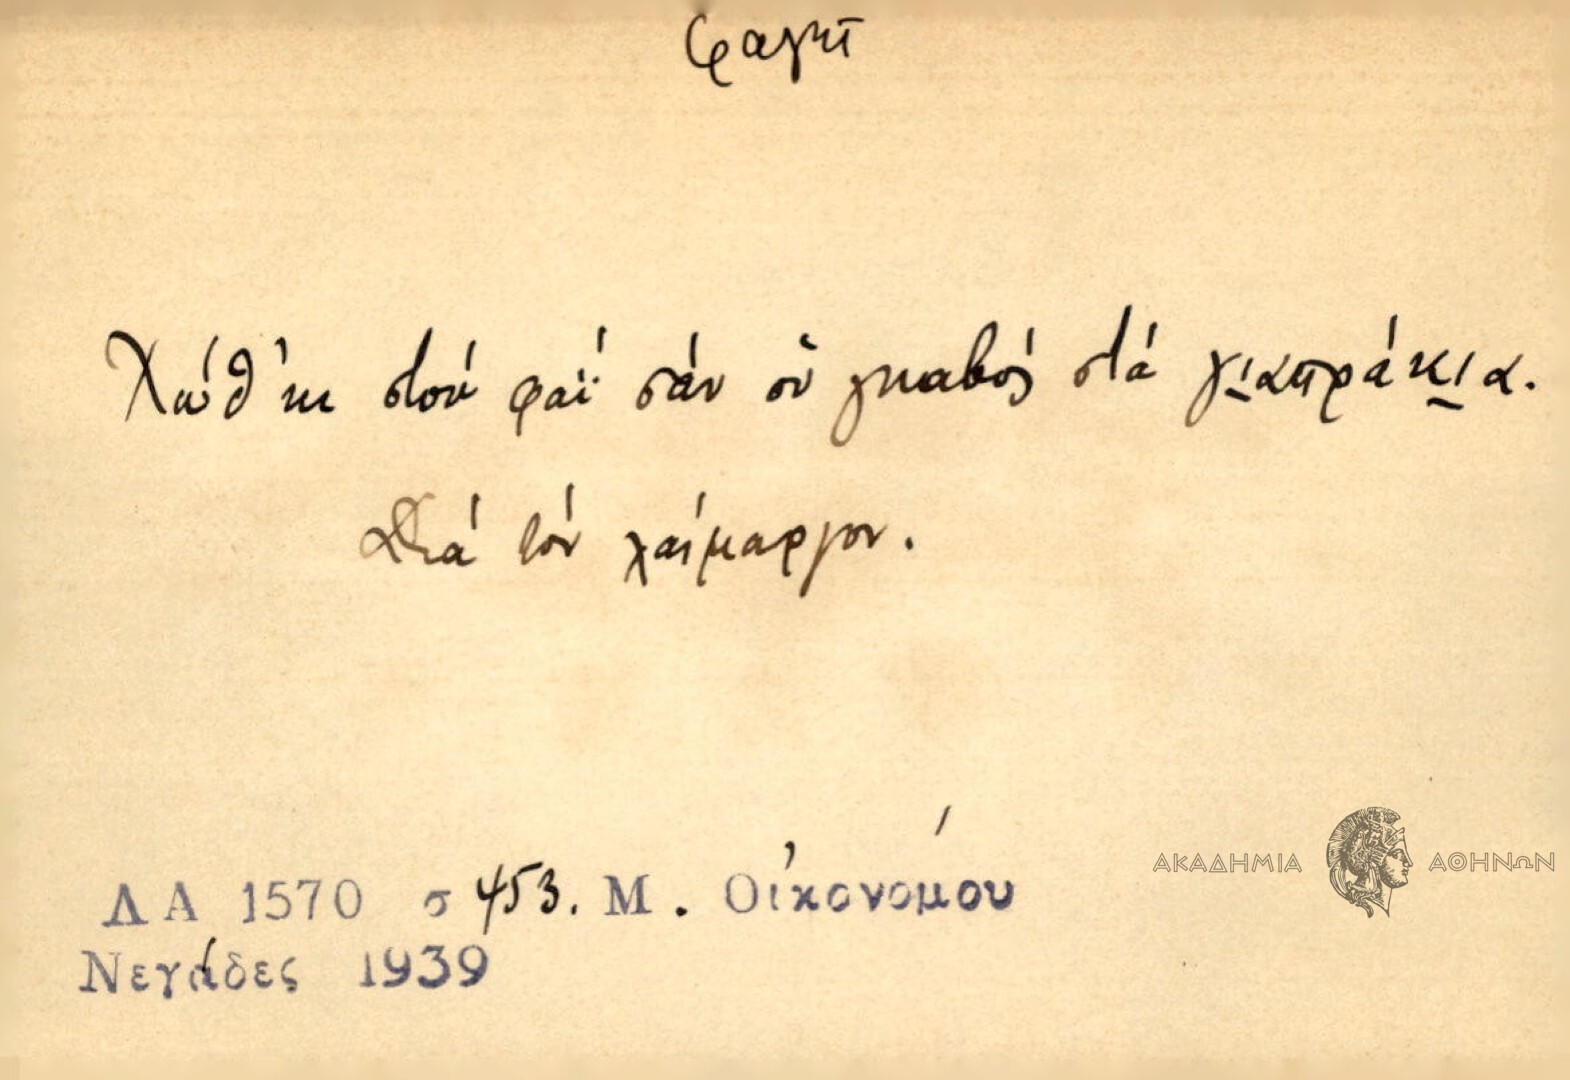 φαγητ
Χώθ'κι στού φαΐ σάν οὑ γκαβός στά γ̲ι̲απράκ̲ι̲α.
Διά τόν λαίμαργον.
ΛΑ 1570 σ 453. Μ. Οἰκονόμου
Νεγάδες 1939
ΑΚΑΔΗΜΙΑ ΑΘΗΝΩΝ